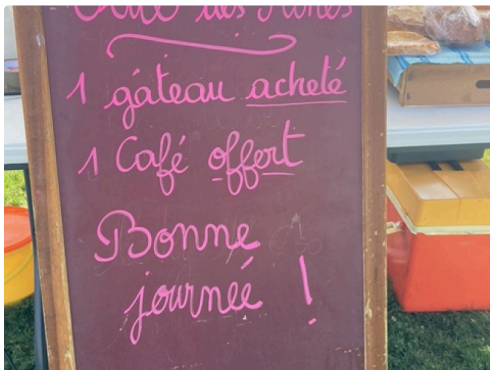 des
1 gâteau acheté
1 Café offert
Bonne
journée !